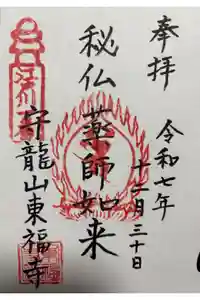 奉拝
令和七年
十一月三十日
秘仏薬師如来
守龍山東福寺